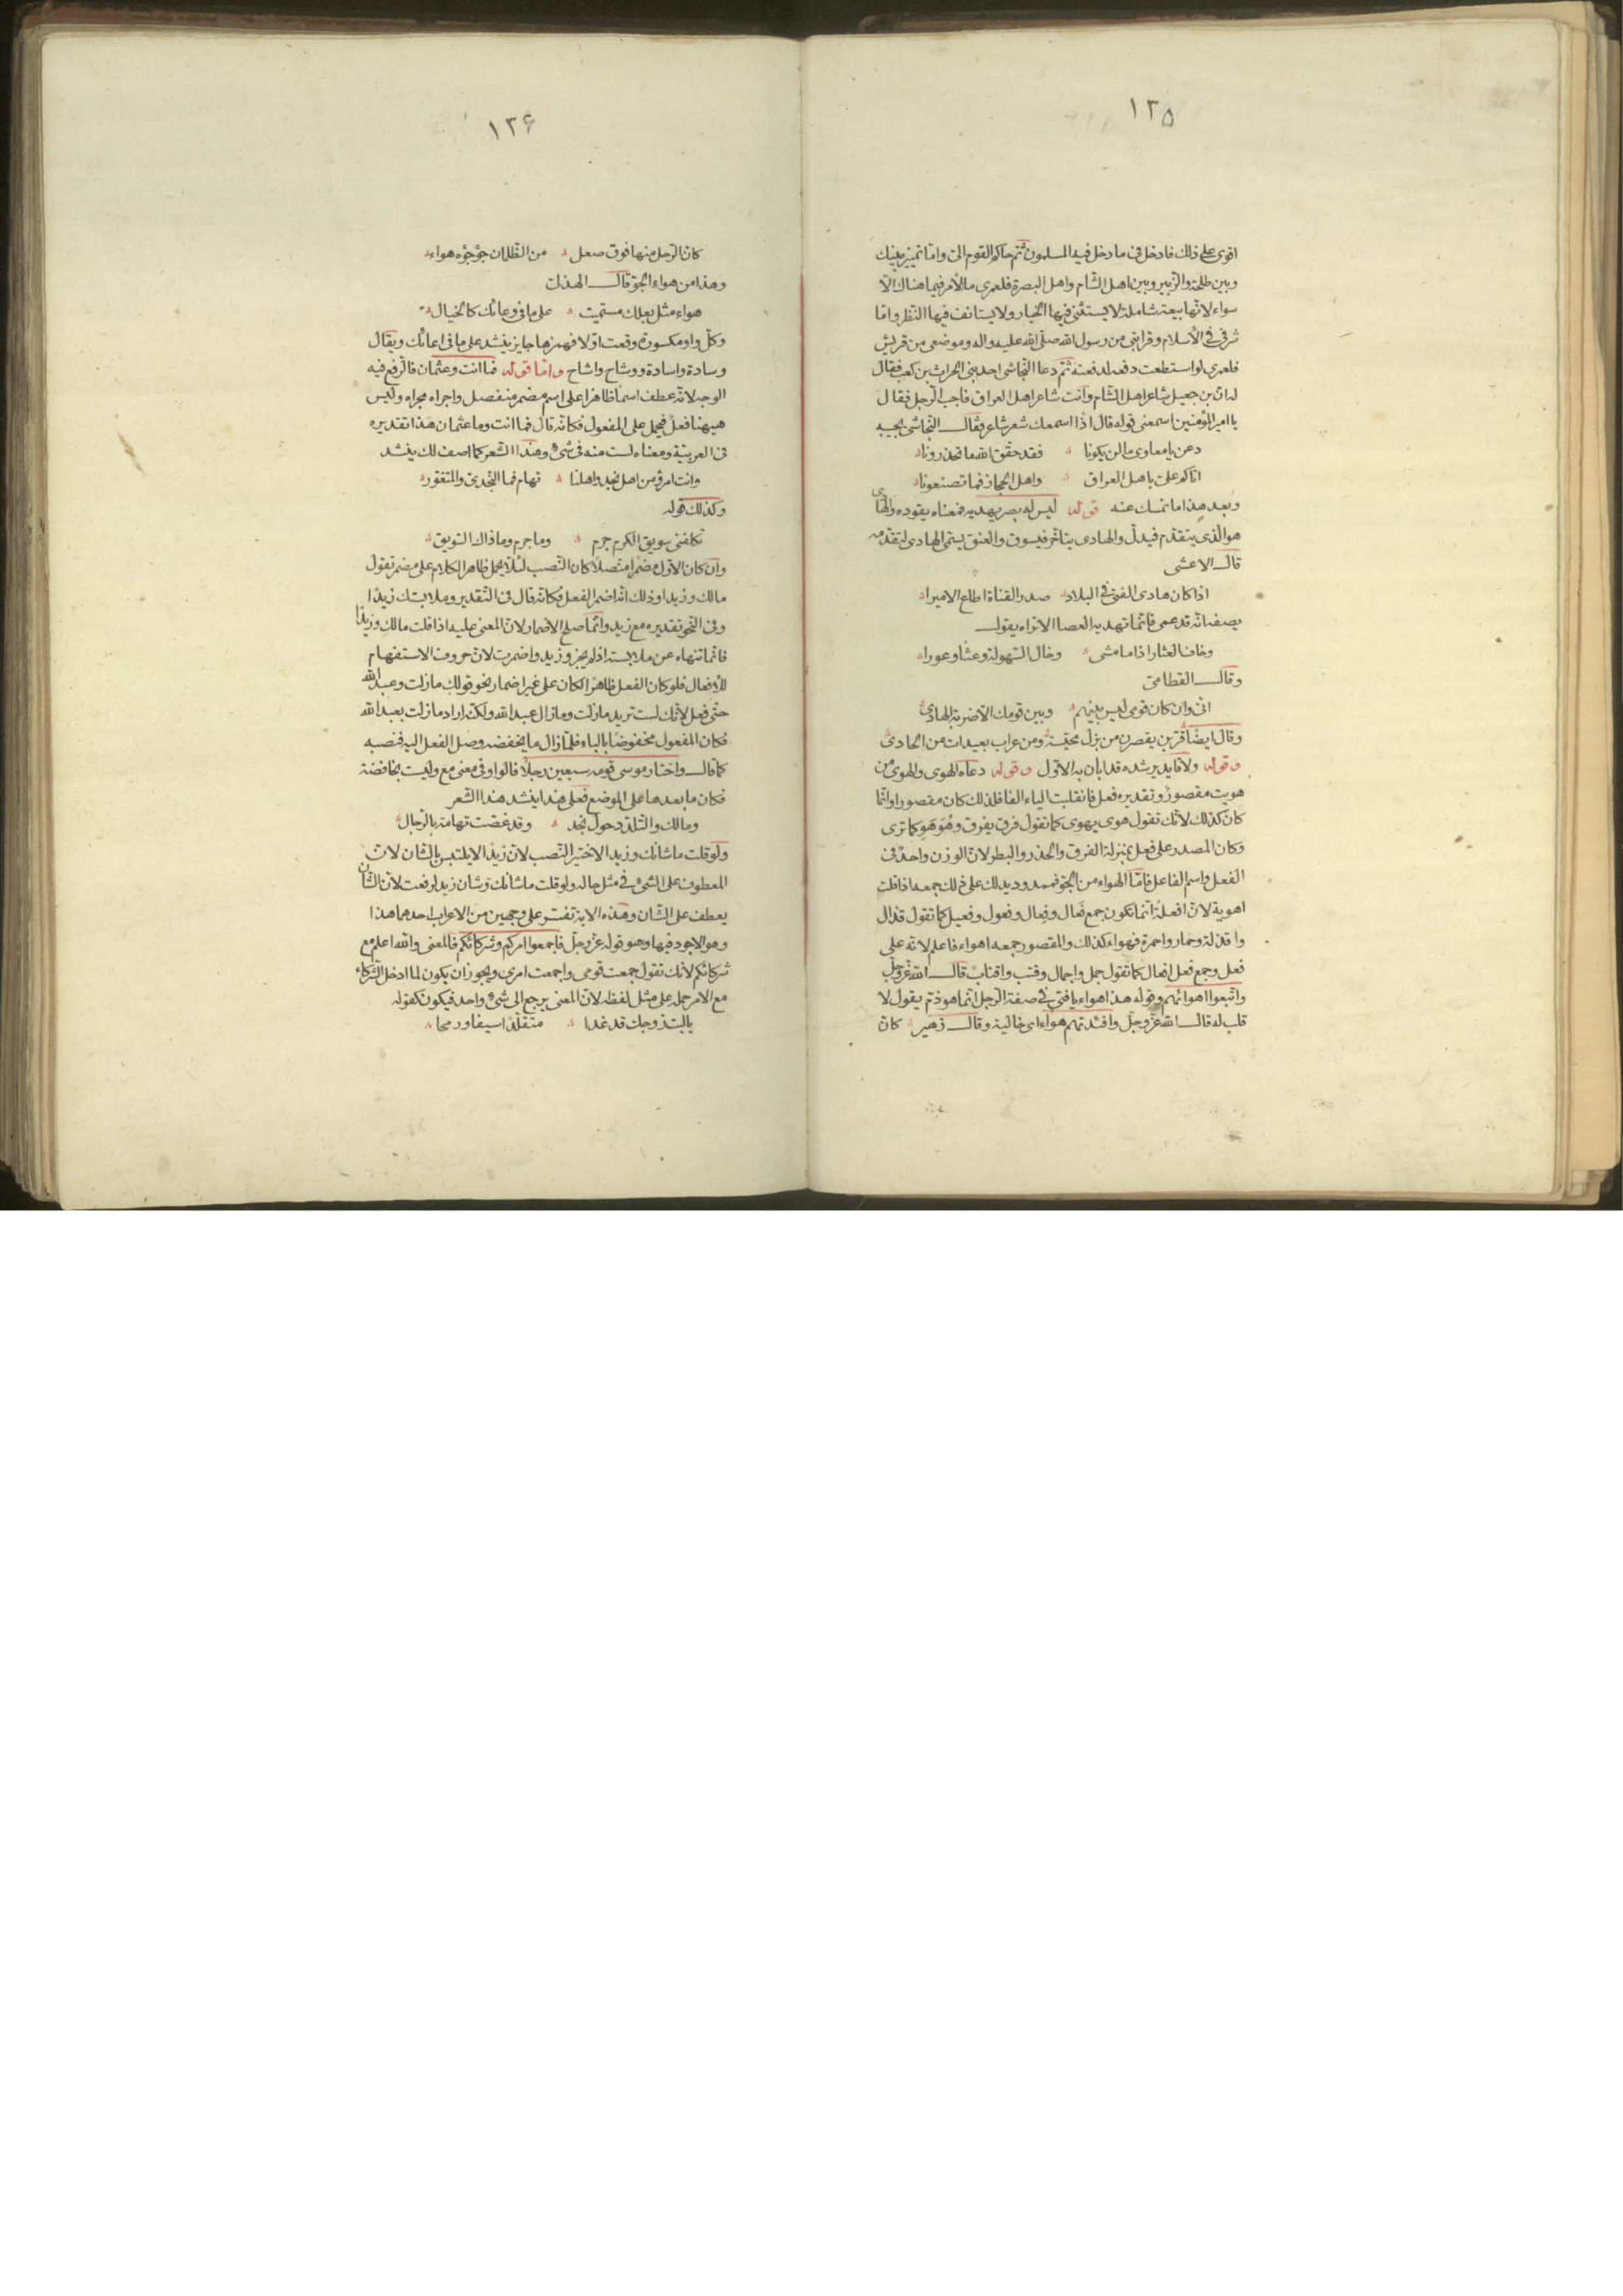 ١٣٥
اقوى على ذلك فادخل فى ما دخل فيه المسلمون ثم حاكم القوم الىّ واما تمييزبينك
وبين طلحة والزبير وبين اهل الشام واهل البصرة فلعمرى ما الامر فيما هناك الّا
سواء لانها بيعة شاملة لا يستثنى فيها الخيار ولا يستانف فيها النظر واما
شرفى فى الاسلام وقرابتى من رسول الله صلّى الله عليه واله وموضعى من قريش
فلعمرى لو استطعت دفعه لدفعته ثم دعا النجاشى احد بنى الحراث بن كعب فقال
له ان بن جعيل شاعر اهل الشام وانت شاعر اهل العراق فاجب الرجل فقال
يا امير المؤمنين اسمعنى قوله قال اذا اسمعك شعر شاعر فقال النجاشى يجيبه
دعن يا معاوى ما لن يكونا فقد حقق الله ما تحذرونا
اتاكم على باهل العراق واهل الحجاز فما تصنعونا
وبعد هذا ما نمسك عنه قوله ليس له بصر يهديه فمعناه يقوده والهادى
هو الذى يتقدم فيدلّ والهادى يتاخر فيسوق والعنق يسمى الهادى لتقدمه
قال الاعشى
اذا كان هادى الفتى فى البلاد صدر القناة اطاع الاميرا
يصف انه قد عمى فانما تهديه العصا الا تراه يقول
وخاف العثار اذا ما مشى وخال السهولة وعثا وعورا
وقال القطامى
انى وان كان قومى ليس بينهم وبين قومك الا ضربة الهادى
وقال ايضا قربن يقصرن من بزل مخيّسة ومن عراب بعيدات من الحادى
وقوله ولا قايد يرشده قد ابان به الاول وقوله دعاه الهوى والهوى من
هويت مقصور وتقديره فعل فانقلبت الياء الفا فلذلك كان مقصورا وانما
كان كذلك لانك تقول هوى يهوى كما تقول فرق يفرق وهُوَ هَوٍ كما ترى
وكان المصدر على فعل بمنزلة الفرق والحذر والبطر لان الوزن واحد فى
الفعل واسم الفاعل فامّا الهواء من الجو فممدود يدلك على ذلك جمعه اذا قلت
اهوية لان افعلة انما تكون جمع فَعال وفِعال وفعول وفعيل كما تقول قذال
واقذلة وحمار واحمرة فهواء كذلك والمقصور جمعه اهواء فاعلم لانه على
فعل وجمع فعل افعال كما تقول جمل واجمال وقتب واقتاب قال الله عزّ وجلّ
واتبعوا اهوائهم وقوله هذا هواء يا فتى فى صفة الرجل انما هو ذم يقول لا
قلب له قال الله عزّ وجلّ وافئدتهم هواء اى خالية وقال زهير كانّ
١٣۶
كان الرحل منها فوق صعل من الظلمان جؤجؤه هواء
وهذا من هواء الجوّ قال الهذلى
هواء مثل بعلك مستميت على ما فى وعائك كالخيال
وكل واو مكسورة وقعت اوّلا فهمزها جايز ينشد على ما فى اعائك ويقال
وسادة واسادة ووشاح واشاح واما قوله فما انت وعثمان فالرفع فيه
الوجه لانه عطف اسمًا ظاهرًا على اسم مضمر منفصل واجراه مجراه وليس
هيهنا فعل فيحمل على المفعول فكانه قال فما انت وما عثمان هذا تقديره
فى العربية ومعناه لست منه فى شئ وهذا الشعر كما اصف لك ينشد
وانت امرؤ من اهل نجد واهلنا تهام فما النجدى والمتغور
وكذلك قوله
تكلفنى سويق الكرم جرم وما جرم وما ذاك السويق
وان كان الاول مضمرا متصلا كان النصب لئلا يحمل ظاهر الكلام على مضمر تقول
مالك وزيدا وذلك انه اضمر الفعل فكانه قال فى التقدير وملابستك زيدًا
وفى النحو تقديره مع زيد وانما صلح الاضمار لان المعنى عليه اذا قلت مالك وزيدًا
فانما تنهاه عن ملابسته اذ لم يجز وزيد واضمرت لان حروف الاستفهام
للافعال فلو كان الفعل ظاهرا لكان على غير اضمار نحو قولك مازلت وعبد الله
حتى فعل لانك لست تريد مازلت ومازال عبد الله ولكن اراد مازلت بعبد الله
فكان المفعول مخفوضا بالباء فلما زال ما يخفضه وصل الفعل اليه فنصبه
كما قال واختار موسى قومه سبعين رجلا فالواو فى معنى مع وليست بخافضة
فكان ما بعدها على الموضع فعلى هذا ينشد هذا الشعر
ومالك والتلدد حول نجد وقد غصت تهامة بالرجال
ولو قلت ما شانك وزيدا لاختير النصب لان زيدًا لا يلتبس بالشان لان
المعطوف على الشئ فى مثل حاله ولو قلت ما شانك وشان زيد لرفعت لان الشان
يعطف على الشان وهذه الاية تفسّر على وجهين من الاعراب احدهما هذا
وهو الاجود فيها وهو قوله عزّ وجلّ فاجمعوا امركم وشركائكم فالمعنى والله اعلم مع
شركائكم لانك تقول جمعت قومى واجمعت امرى ويجوز ان يكون لما ادخل الشركاء
مع الامر حمله على مثل لفظه لان المعنى يرجع الى شئ واحد فيكون كقوله
ياليت زوجك قد غدا متقلدًا سيفا ورمحا